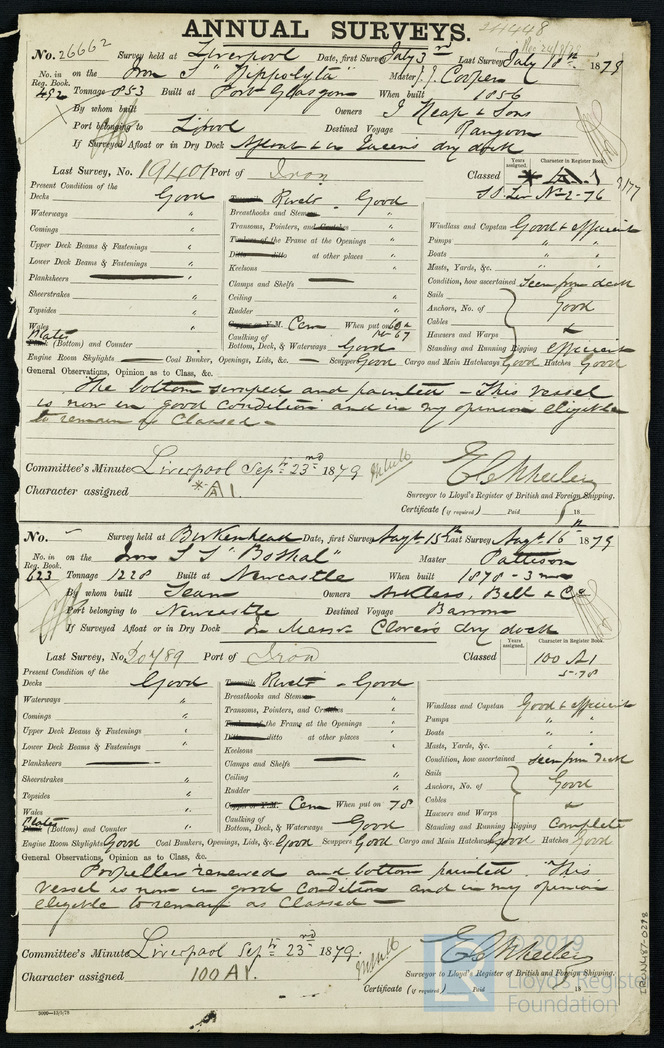 ANNUAL SURVEYS.
No. 26662 Survey held at Liverpool Date, first Survey July 3rd Last Survey July 18th 1879
No. in Reg. Book. 492 on the Iron S "Hippolyta" Master J. Cooper
Tonnage 853 Built at Port Glasgow When built 1856
By whom built Owners J Heap & Sons
Port belonging to L'pool Destined Voyage Rangoon
If Surveyed Afloat or in Dry Dock Afloat & in Queens dry dock
Years assigned. Character in Register Book.
Last Survey, No. 19401 Port of Iron Classed * A.1
SS Lor No 2-76 2/77
Present Condition of the
Decks Good Rivets Good
Waterways " Breasthooks and Stem " Windlass and Capstan Good & efficient
Comings " Transoms, Pointers, and Crutches " Pumps " "
Upper Deck Beams & Fastenings " Timbers of the Frame at the Openings " Boats " "
Lower Deck Beams & Fastenings " Ditto ditto at other places " Masts, Yards, &c. " "
Planksheers Keelsons " Condition, how ascertained Seen from deck
Sheerstrakes " Clamps and Shelfs Sails
Topsides " Ceiling " Anchors, No. of Good
Wales " Rudder " Cables
Plates (Bottom) and Counter " Copper or Y.M. Cem When put on Hawsers and Warps
Caulking of Bottom, Deck, & Waterways Good Standing and Running Rigging efficient
Engine Room Skylights Coal Bunker, Openings, Lids, &c. Scuppers Good Cargo and Main Hatchways Good Hatches Good
General Observations, Opinion as to Class, &c.
The bottom scraped and painted - This vessel
is now in good condition and in my opinion eligible
to remain as Classed -
Committee's Minute Liverpool Sepr 23rd 1879
Character assigned * A 1.
E C Wheeler
Surveyor to Lloyd's Register of British and Foreign Shipping.
Certificate (if required) Paid 18
No. - Survey held at Birkenhead Date, first Survey Augt 15th Last Survey Augt 16th 1879
No. in Reg. Book. 623 on the Iron S S "Bothal" Master Pattison
Tonnage 1228 Built at Newcastle When built 1878 - 3 mo
By whom built Owners Bell & Co
Port belonging to Newcastle Destined Voyage Barrow
If Surveyed Afloat or in Dry Dock In Messrs Clovers dry dock
Years assigned. Character in Register Book.
Last Survey, No. 20789 Port of Iron Classed 100 A1
5-78
Present Condition of the
Decks Good Rivets - Good
Waterways " Breasthooks and Stem " Windlass and Capstan Good & efficient
Comings " Transoms, Pointers, and Crutches " Pumps " "
Upper Deck Beams & Fastenings " Timbers of the Frame at the Openings " Boats " "
Lower Deck Beams & Fastenings " Ditto ditto at other places " Masts, Yards, &c. " "
Planksheers Keelsons " Condition, how ascertained seen from deck
Sheerstrakes " Clamps and Shelfs Sails
Topsides " Ceiling " Anchors, No. of Good
Wales " Rudder " Cables
Plates (Bottom) and Counter " Copper or Y.M. Cem When put on 78 Hawsers and Warps
Caulking of Bottom, Deck, & Waterways Good Standing and Running Rigging Complete
Engine Room Skylights Good Coal Bunkers, Openings, Lids, &c. Good Scuppers Good Cargo and Main Hatchways Good Hatches Good
General Observations, Opinion as to Class, &c.
Propeller renewed and bottom painted. This
vessel is now in good condition and in my opinion
eligible to remain as Classed -
Committee's Minute Liverpool Sepr 23rd 1879.
Character assigned 100 A1.
E C Wheeler
Surveyor to Lloyd's Register of British and Foreign Shipping.
Certificate (if required) Paid 18
IRON487-0298
© 2019
Lloyd's Register
Foundation